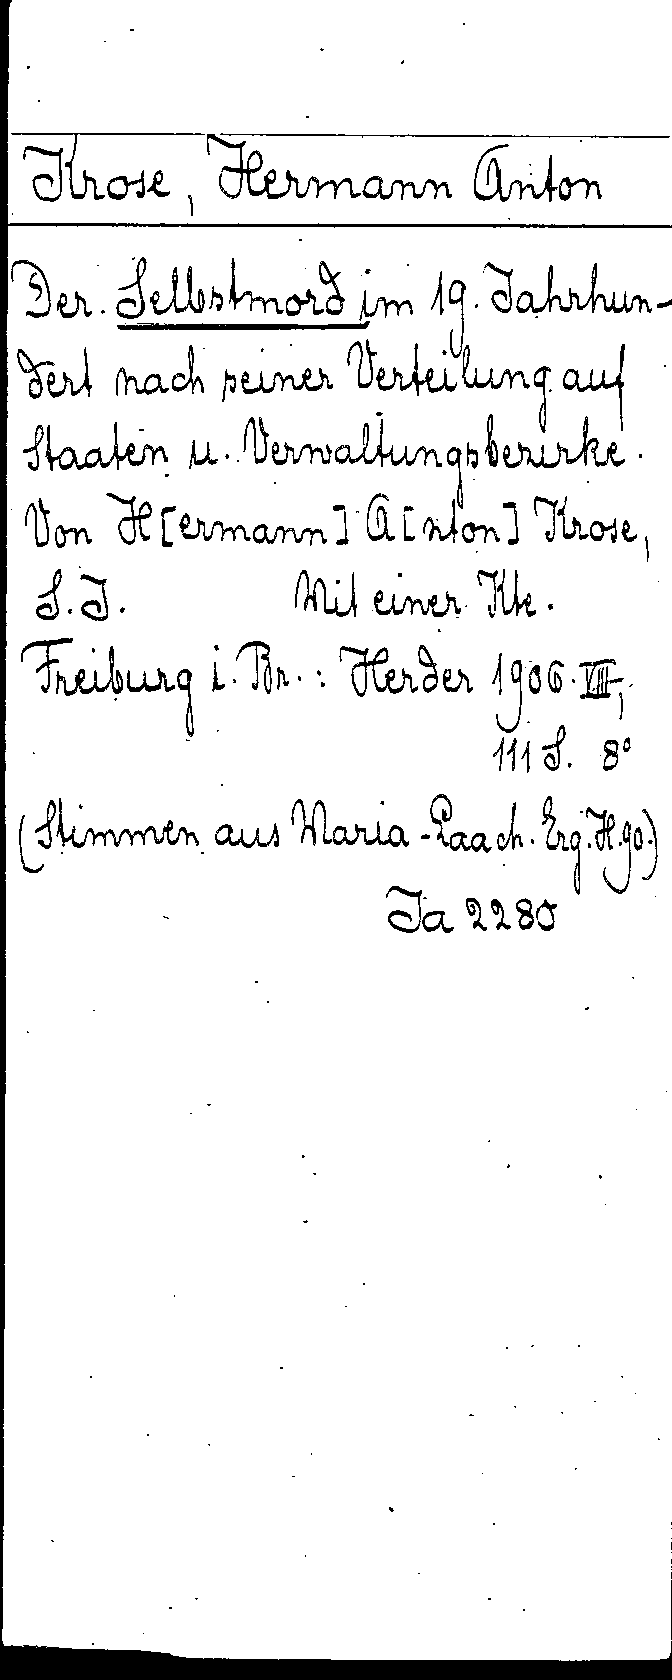 Krose, Hermann Anton
Der Selbstmord im 19. Jahrhun-
dert nach seiner Verteilung auf
Staaten u. Verwaltungsbezirke.
Von H[ermann] A[nton] Krose,
S.J. Mit einer Kte.
Freiburg i. Br.: Herder 1906. VIII,
111 S. 8°
(Stimmen aus Maria-Laach. Erg.H.90.)
Ja 2280